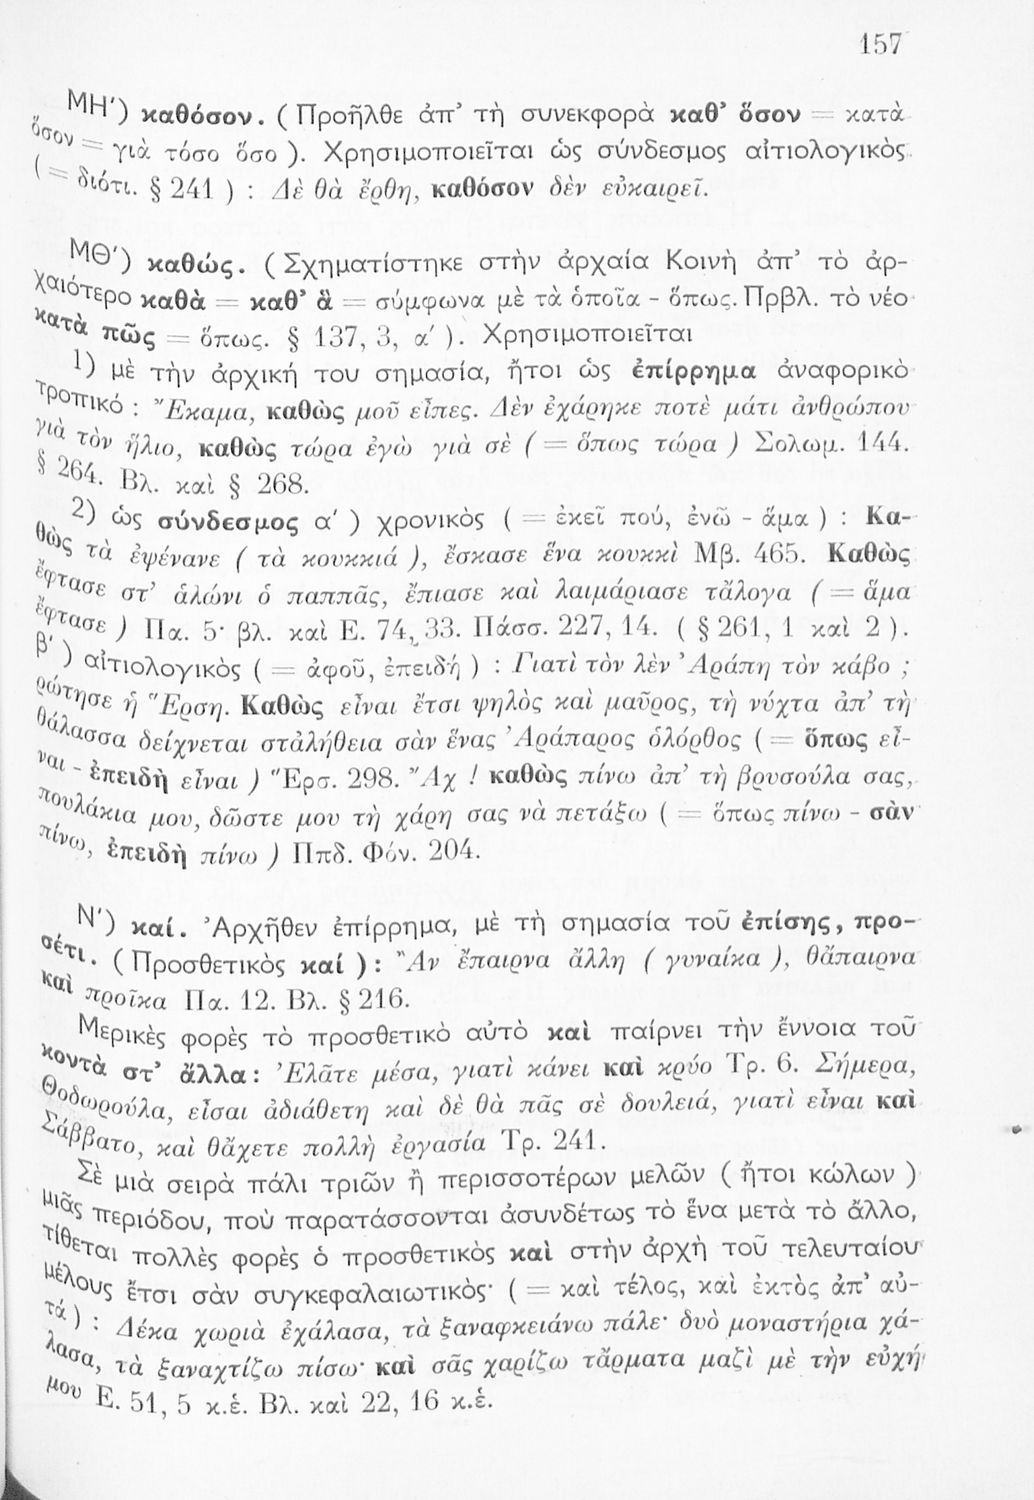 157
ΜΗ') καθόσον. ( Προῆλθε ἀπ' τὴ συνεκφορὰ καθ' ὅσον = κατὰ
ὅσον = γιὰ τόσο ὅσο ). Χρησιμοποιεῖται ὡς σύνδεσμος αἰτιολογικὸς
( = διότι. § 241 ) : Δὲ θὰ ἔρθη, καθόσον δὲν εὐκαιρεῖ.
ΜΘ') καθώς. ( Σχηματίστηκε στὴν ἀρχαία Κοινὴ ἀπ' τὸ ἀρ-
χαιότερο καθὰ = καθ' ἃ = σύμφωνα μὲ τὰ ὁποῖα - ὅπως. Πρβλ. τὸ νέο
κατὰ πῶς = ὅπως. § 137, 3, α' ). Χρησιμοποιεῖται
1) μὲ τὴν ἀρχική του σημασία, ἤτοι ὡς ἐπίρρημα ἀναφορικὸ
τροπικό : Ἔκαμα, καθὼς μοῦ εἶπες. Δὲν ἐχάρηκε ποτὲ μάτι ἀνθρώπου
γιὰ τὸν ἥλιο, καθὼς τώρα ἐγὼ γιὰ σὲ ( = ὅπως τώρα ) Σολωμ. 144.
§ 264. Βλ. καὶ § 268.
2) ὡς σύνδεσμος α' ) χρονικὸς ( = ἐκεῖ πού, ἐνῶ - ἅμα ) : Κα-
θὼς τὰ ἐψένανε ( τὰ κουκκιά ), ἔσκασε ἕνα κουκκὶ Μβ. 465. Καθὼς
ἔφτασε στ' ἁλώνι ὁ παππᾶς, ἔπιασε καὶ λαιμάριασε τἄλογα ( = ἅμα
ἔφτασε ) Πα. 5· βλ. καὶ Ε. 74, 33. Πάσσ. 227, 14. ( § 261, 1 καὶ 2 ).
β' ) αἰτιολογικὸς ( = ἀφοῦ, ἐπειδή ) : Γιατὶ τὸν λὲν Ἀράπη τὸν κάβο ;
ρώτησε ἡ Ἕρση. Καθὼς εἶναι ἔτσι ψηλὸς καὶ μαῦρος, τὴ νύχτα ἀπ' τὴ
θάλασσα δείχνεται στἀλήθεια σὰν ἕνας Ἀράπαρος ὁλόρθος ( = ὅπως εἶ-
ναι - ἐπειδὴ εἶναι ) Ἕρσ. 298. Ἄχ ! καθὼς πίνω ἀπ' τὴ βρυσούλα σας,
πουλάκια μου, δῶστε μου τὴ χάρη σας νὰ πετάξω ( = ὅπως πίνω - σὰν
πίνω, ἐπειδὴ πίνω ) Ππδ. Φόν. 204.
Ν') καί. Ἀρχῆθεν ἐπίρρημα, μὲ τὴ σημασία τοῦ ἐπίσης, προ-
σέτι. ( Προσθετικὸς καί ) : Ἂν ἔπαιρνα ἄλλη ( γυναίκα ), θἄπαιρνα
καὶ προῖκα Πα. 12. Βλ. § 216.
Μερικὲς φορὲς τὸ προσθετικὸ αὐτὸ καὶ παίρνει τὴν ἔννοια τοῦ
κοντὰ στ' ἄλλα: Ἐλᾶτε μέσα, γιατὶ κάνει καὶ κρύο Τρ. 6. Σήμερα,
Θοδωρούλα, εἶσαι ἀδιάθετη καὶ δὲ θὰ πᾶς σὲ δουλειά, γιατὶ εἶναι καὶ
Σάββατο, καὶ θἄχετε πολλὴ ἐργασία Τρ. 241.
Σὲ μιὰ σειρὰ πάλι τριῶν ἢ περισσοτέρων μελῶν ( ἤτοι κώλων )
μιᾶς περιόδου, ποὺ παρατάσσονται ἀσυνδέτως τὸ ἕνα μετὰ τὸ ἄλλο,
τίθεται πολλὲς φορὲς ὁ προσθετικὸς καὶ στὴν ἀρχὴ τοῦ τελευταίου
μέλους ἔτσι σὰν συγκεφαλαιωτικὸς· ( = καὶ τέλος, καὶ ἐκτὸς ἀπ' αὐ-
τά ) : Δέκα χωριὰ ἐχάλασα, τὰ ξαναφκειάνω πάλε· δυὸ μοναστήρια χά-
λασα, τὰ ξαναχτίζω πίσω· καὶ σᾶς χαρίζω τἄρματα μαζὶ μὲ τὴν εὐχή
μου Ε. 51, 5 κ.ἑ. Βλ. καὶ 22, 16 κ.ἑ.